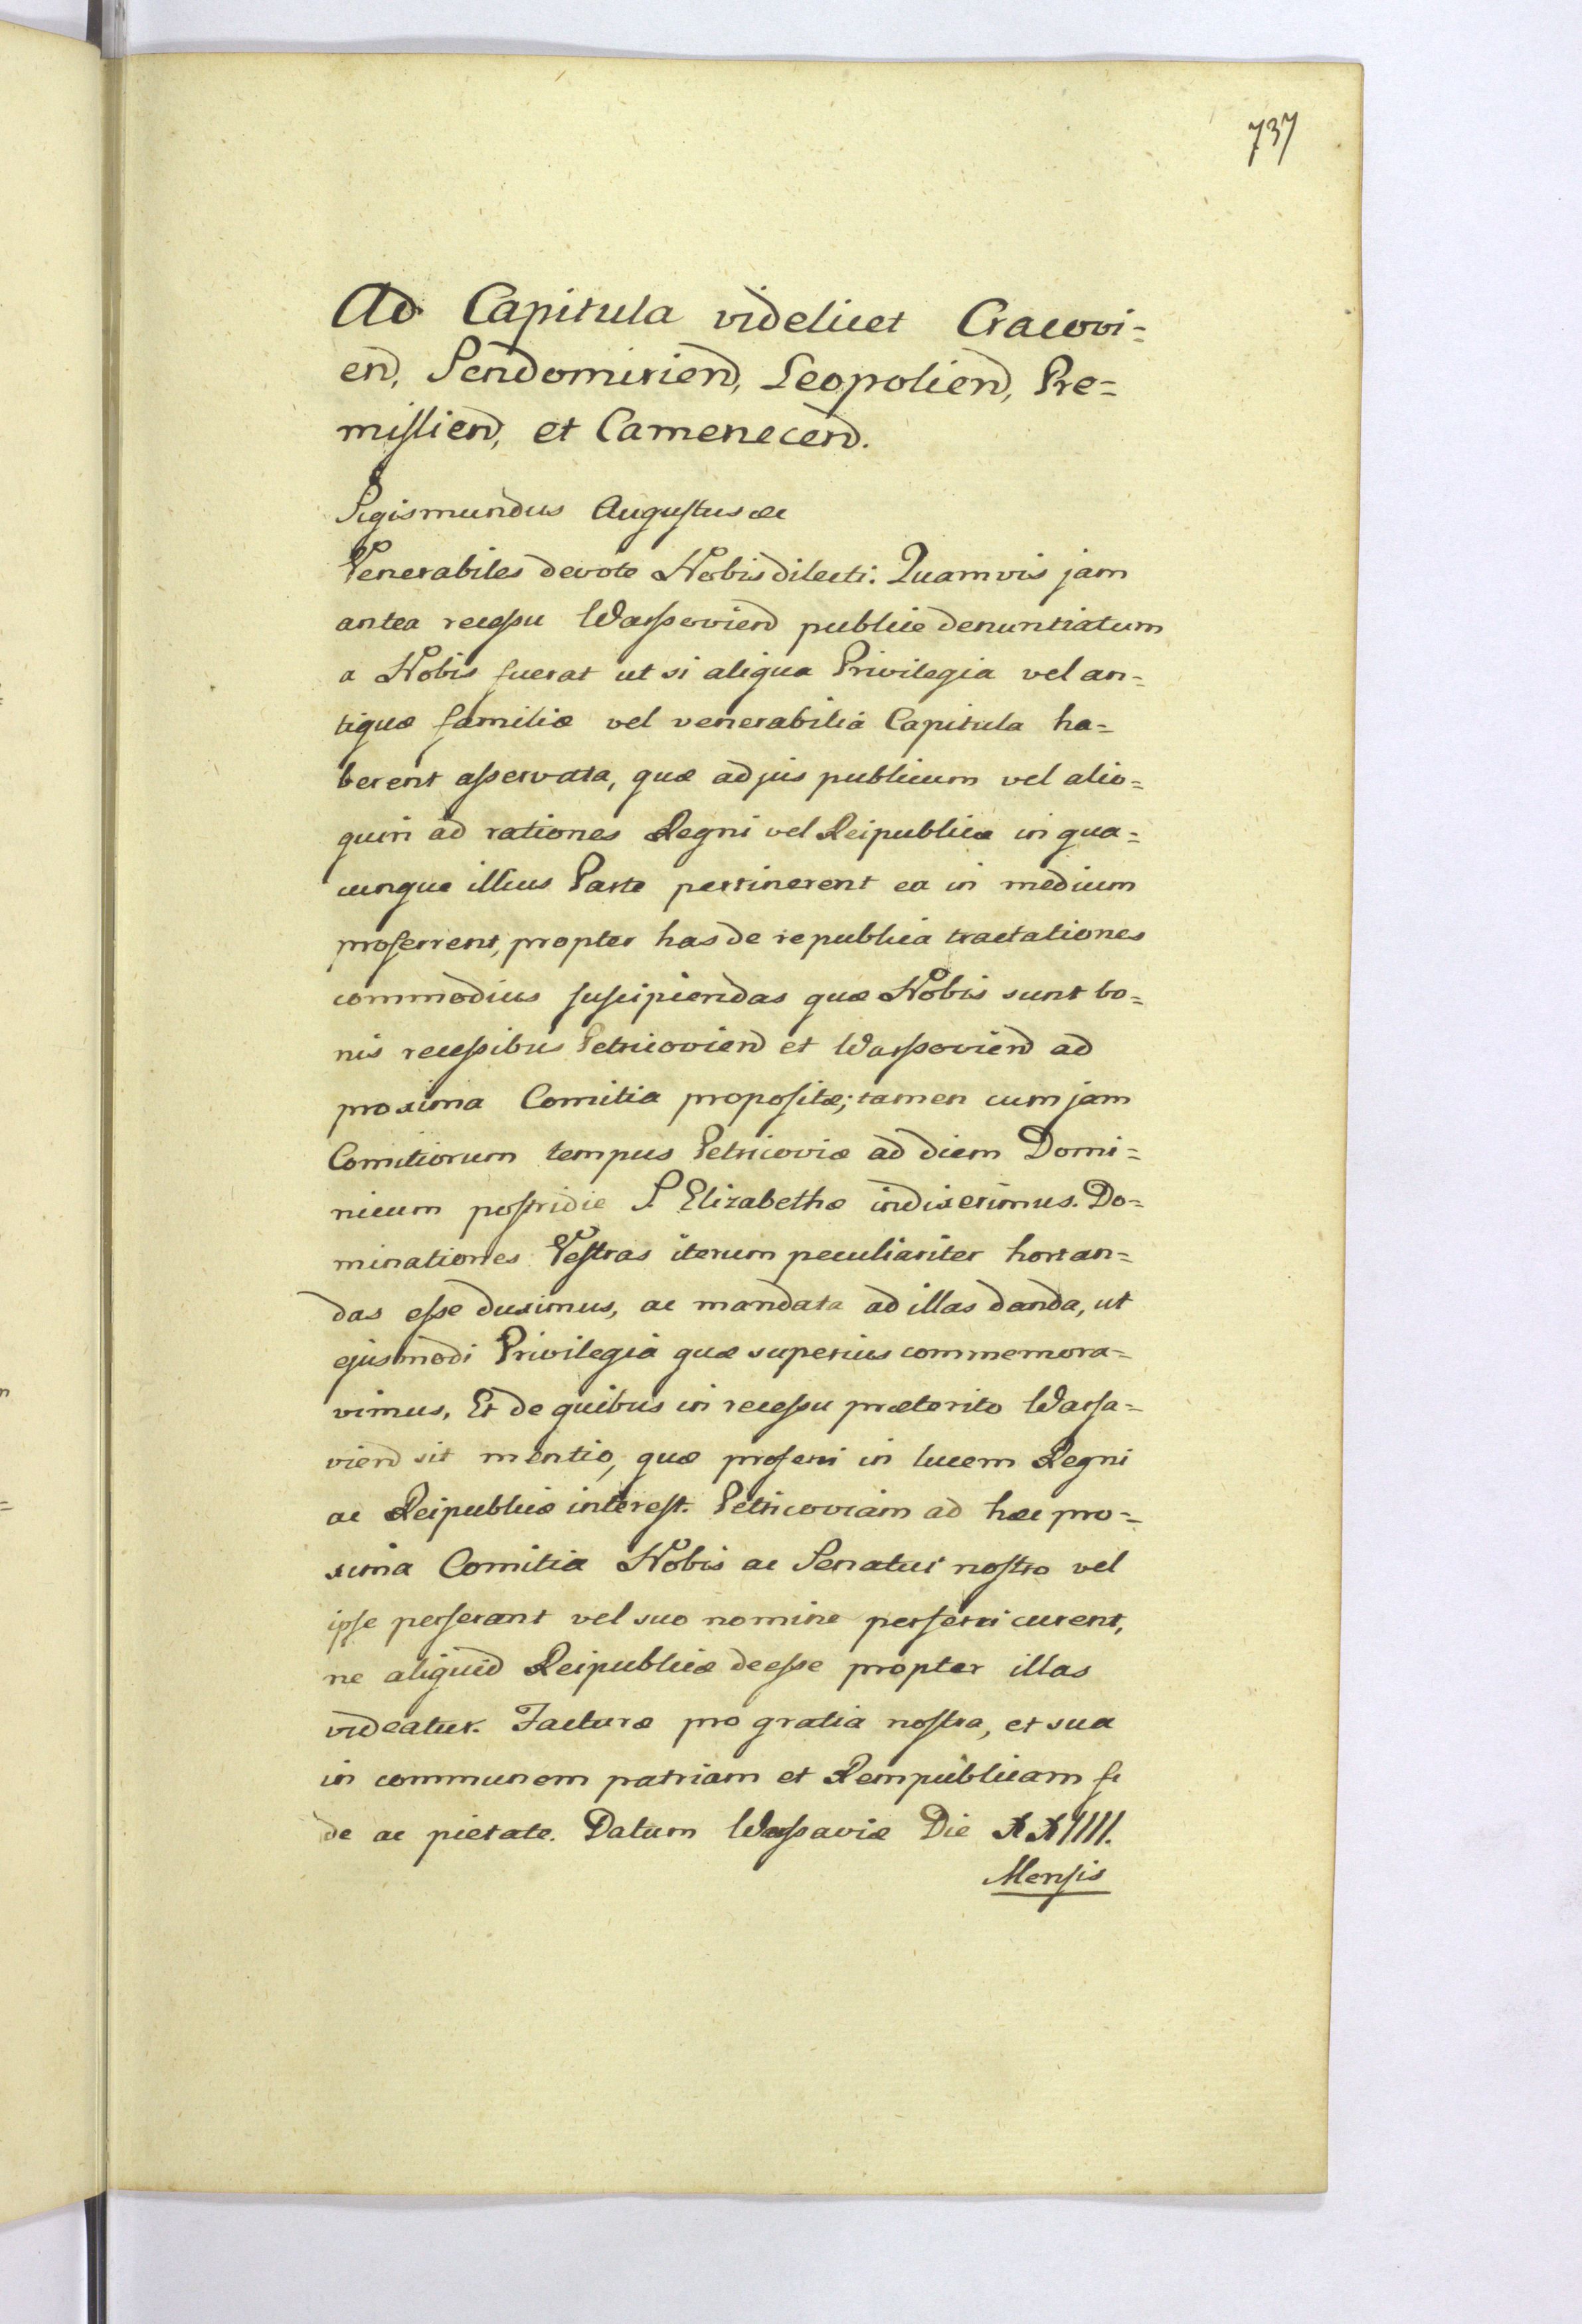 737
Ad Capitula videlicet Cracovi=
end, Sendomiriend, Leopoliend, Pre=
misliend, et Camenecend.
Sigismundus Augustus etc
Venerabiles devote Nobis dilecti: Quamvis jam
antea recessu Warssoviend publice denuntiatum
a Nobis fuerat ut si aliqua Privilegia vel an=
tiquæ familiæ vel venerabilia Capitula ha=
berent asservata, quæ ad jus publicum vel alio=
quin ad rationes Regni vel Reipublicæ in qua=
cunque illius Parte pertinerent ea in medium
proferrent, propter has de republica tractationes
commodius suscipiendas quæ Nobis sunt bo=
nis recessibus Petricoviend et Warssoviend ad
proxima Comitia propositæ; tamen cum jam
Comitiorum tempus Petricoviæ ad diem Domi=
nicum postridie S Elizabethæ indixerimus. Do=
minationes Vestras iterum peculiariter hortan=
das esse duximus, ac mandata ad illas danda, ut
ejusmodi Privilegia quæ superius commemora=
vimus, Et de quibus in recessu præterito Warsa=
viend sit mentio, quæ proferri in lucem Regni
ac Reipublicæ interest. Petricoviam ad hæc pro=
xima Comitia Nobis ac Senatui nostro vel
ipse perferant vel suo nomine perferri curent,
ne aliquid Reipublicæ deesse propter illas
videatur. Facturæ pro gratia nostra, et sua
in communem patriam et Rempublicam fi
de ac pietate. Datum Warssaviæ Die XXIIII.
Mensis